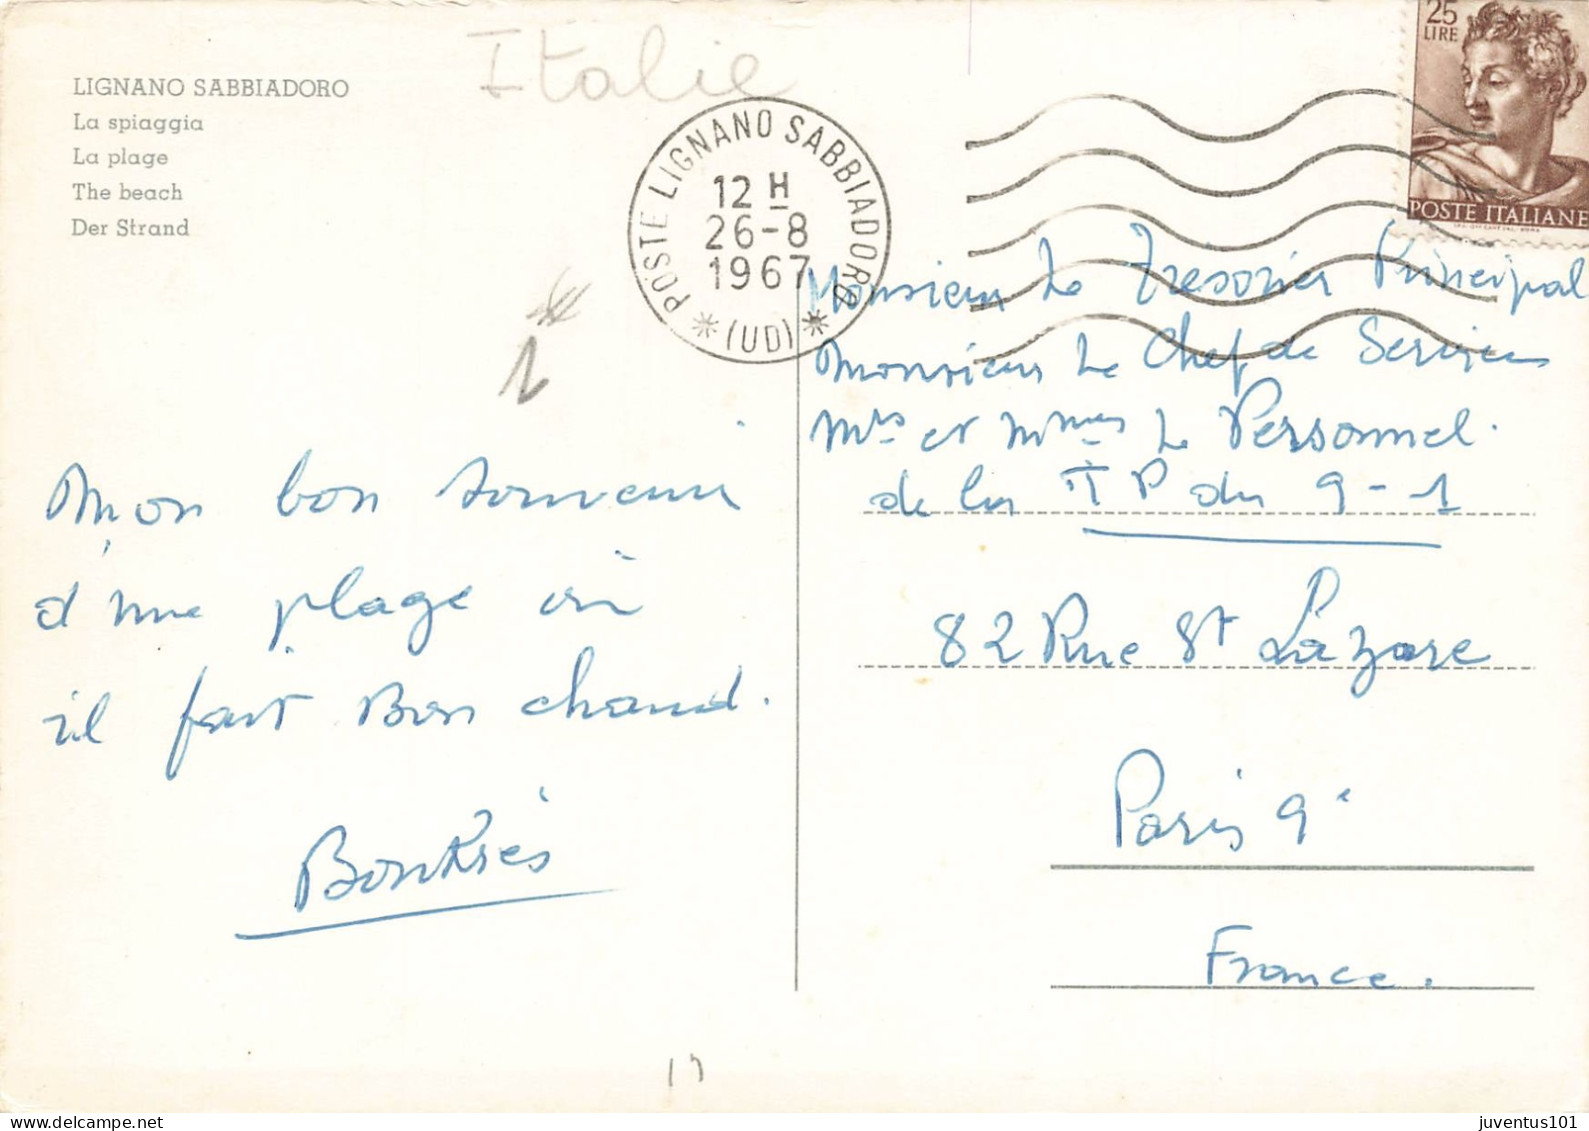 Italie
LIGNANO SABBIADORO
La spiaggia
La plage
The beach
Der Strand
POSTE LIGNANO SABBIADORO
12 H
26-8
1967
(UD)
25
LIRE
POSTE ITALIANE
1
Mon bon souvenir
d'une plage où
il fait Bon chaud.
Monsieur Le Tresorier Principal
Monsieur Le Chef de Services
Mrs et Mmes Le Personnel.
de la TP du 9-1
82 Rue St Lazare
Paris 9e
France.
17
delcampe.net
juventus101